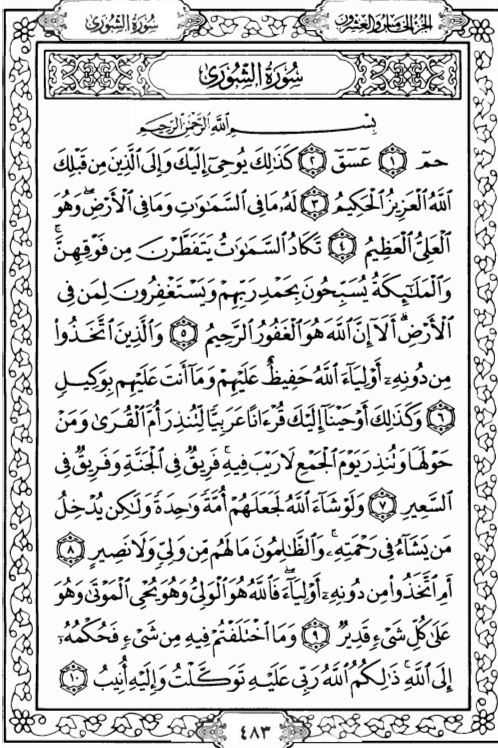 الجزء الخامس والعشرون سورة الشورى
سُورَةُ الشُّورَىٰ
بِسْمِ ٱللَّهِ ٱلرَّحْمَٰنِ ٱلرَّحِيمِ
حمٓ ١ عٓسٓقٓ ٢ كَذَٰلِكَ يُوحِىٓ إِلَيْكَ وَإِلَى ٱلَّذِينَ مِن قَبْلِكَ
ٱللَّهُ ٱلْعَزِيزُ ٱلْحَكِيمُ ٣ لَهُۥ مَا فِى ٱلسَّمَٰوَٰتِ وَمَا فِى ٱلْأَرْضِ ۖ وَهُوَ
ٱلْعَلِىُّ ٱلْعَظِيمُ ٤ تَكَادُ ٱلسَّمَٰوَٰتُ يَتَفَطَّرْنَ مِن فَوْقِهِنَّ ۚ
وَٱلْمَلَٰٓئِكَةُ يُسَبِّحُونَ بِحَمْدِ رَبِّهِمْ وَيَسْتَغْفِرُونَ لِمَن فِى
ٱلْأَرْضِ ۗ أَلَآ إِنَّ ٱللَّهَ هُوَ ٱلْغَفُورُ ٱلرَّحِيمُ ٥ وَٱلَّذِينَ ٱتَّخَذُوا۟
مِن دُونِهِۦٓ أَوْلِيَآءَ ٱللَّهُ حَفِيظٌ عَلَيْهِمْ وَمَآ أَنتَ عَلَيْهِم بِوَكِيلٍ
٦ وَكَذَٰلِكَ أَوْحَيْنَآ إِلَيْكَ قُرْءَانًا عَرَبِيًّا لِّتُنذِرَ أُمَّ ٱلْقُرَىٰ وَمَنْ
حَوْلَهَا وَتُنذِرَ يَوْمَ ٱلْجَمْعِ لَا رَيْبَ فِيهِ ۚ فَرِيقٌ فِى ٱلْجَنَّةِ وَفَرِيقٌ فِى
ٱلسَّعِيرِ ٧ وَلَوْ شَآءَ ٱللَّهُ لَجَعَلَهُمْ أُمَّةً وَٰحِدَةً وَلَٰكِن يُدْخِلُ
مَن يَشَآءُ فِى رَحْمَتِهِۦ ۚ وَٱلظَّٰلِمُونَ مَا لَهُم مِّن وَلِىٍّ وَلَا نَصِيرٍ ٨
أَمِ ٱتَّخَذُوا۟ مِن دُونِهِۦٓ أَوْلِيَآءَ ۖ فَٱللَّهُ هُوَ ٱلْوَلِىُّ وَهُوَ يُحْىِ ٱلْمَوْتَىٰ وَهُوَ
عَلَىٰ كُلِّ شَىْءٍ قَدِيرٌ ٩ وَمَا ٱخْتَلَفْتُمْ فِيهِ مِن شَىْءٍ فَحُكْمُهُۥٓ
إِلَى ٱللَّهِ ۚ ذَٰلِكُمُ ٱللَّهُ رَبِّى عَلَيْهِ تَوَكَّلْتُ وَإِلَيْهِ أُنِيبُ ١٠
٤٨٣